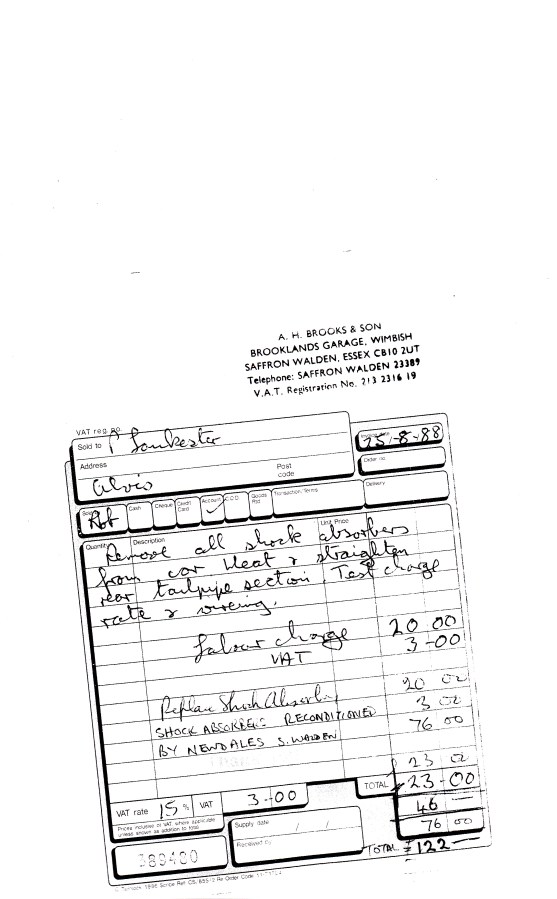 A. H. BROOKS & SON
BROOKLANDS GARAGE, WIMBISH
SAFFRON WALDEN, ESSEX CB10 2UT
Telephone: SAFFRON WALDEN 23389
V.A.T. Registration No. 213 2316 19
VAT reg. no
Sold to
Invoice date 25-8-88
Address
Post code
Order no
Alvis
Cash Cheque Credit Card Account ✓ C.O.D. Goods Rtd Transaction/Terms Delivery
Quantity Description Unit Price
Remove all shock absorbers
from car Heat & straighten
rear tailpipe section Test charge
rate & wireing.
Labour charge 20 00
VAT 3-00
Replace Shock Absorbers 20 00
3 00
SHOCK ABSORBERS RECONDITIONED 76 00
BY NEWDALES S. WALDEN
23 00
TOTAL 23-00
VAT rate 15 % VAT 3-00
46
Prices inclusive of VAT where applicable
unless shown as addition to total
Supply date / /
76 00
Received by
TOTAL £122
389480